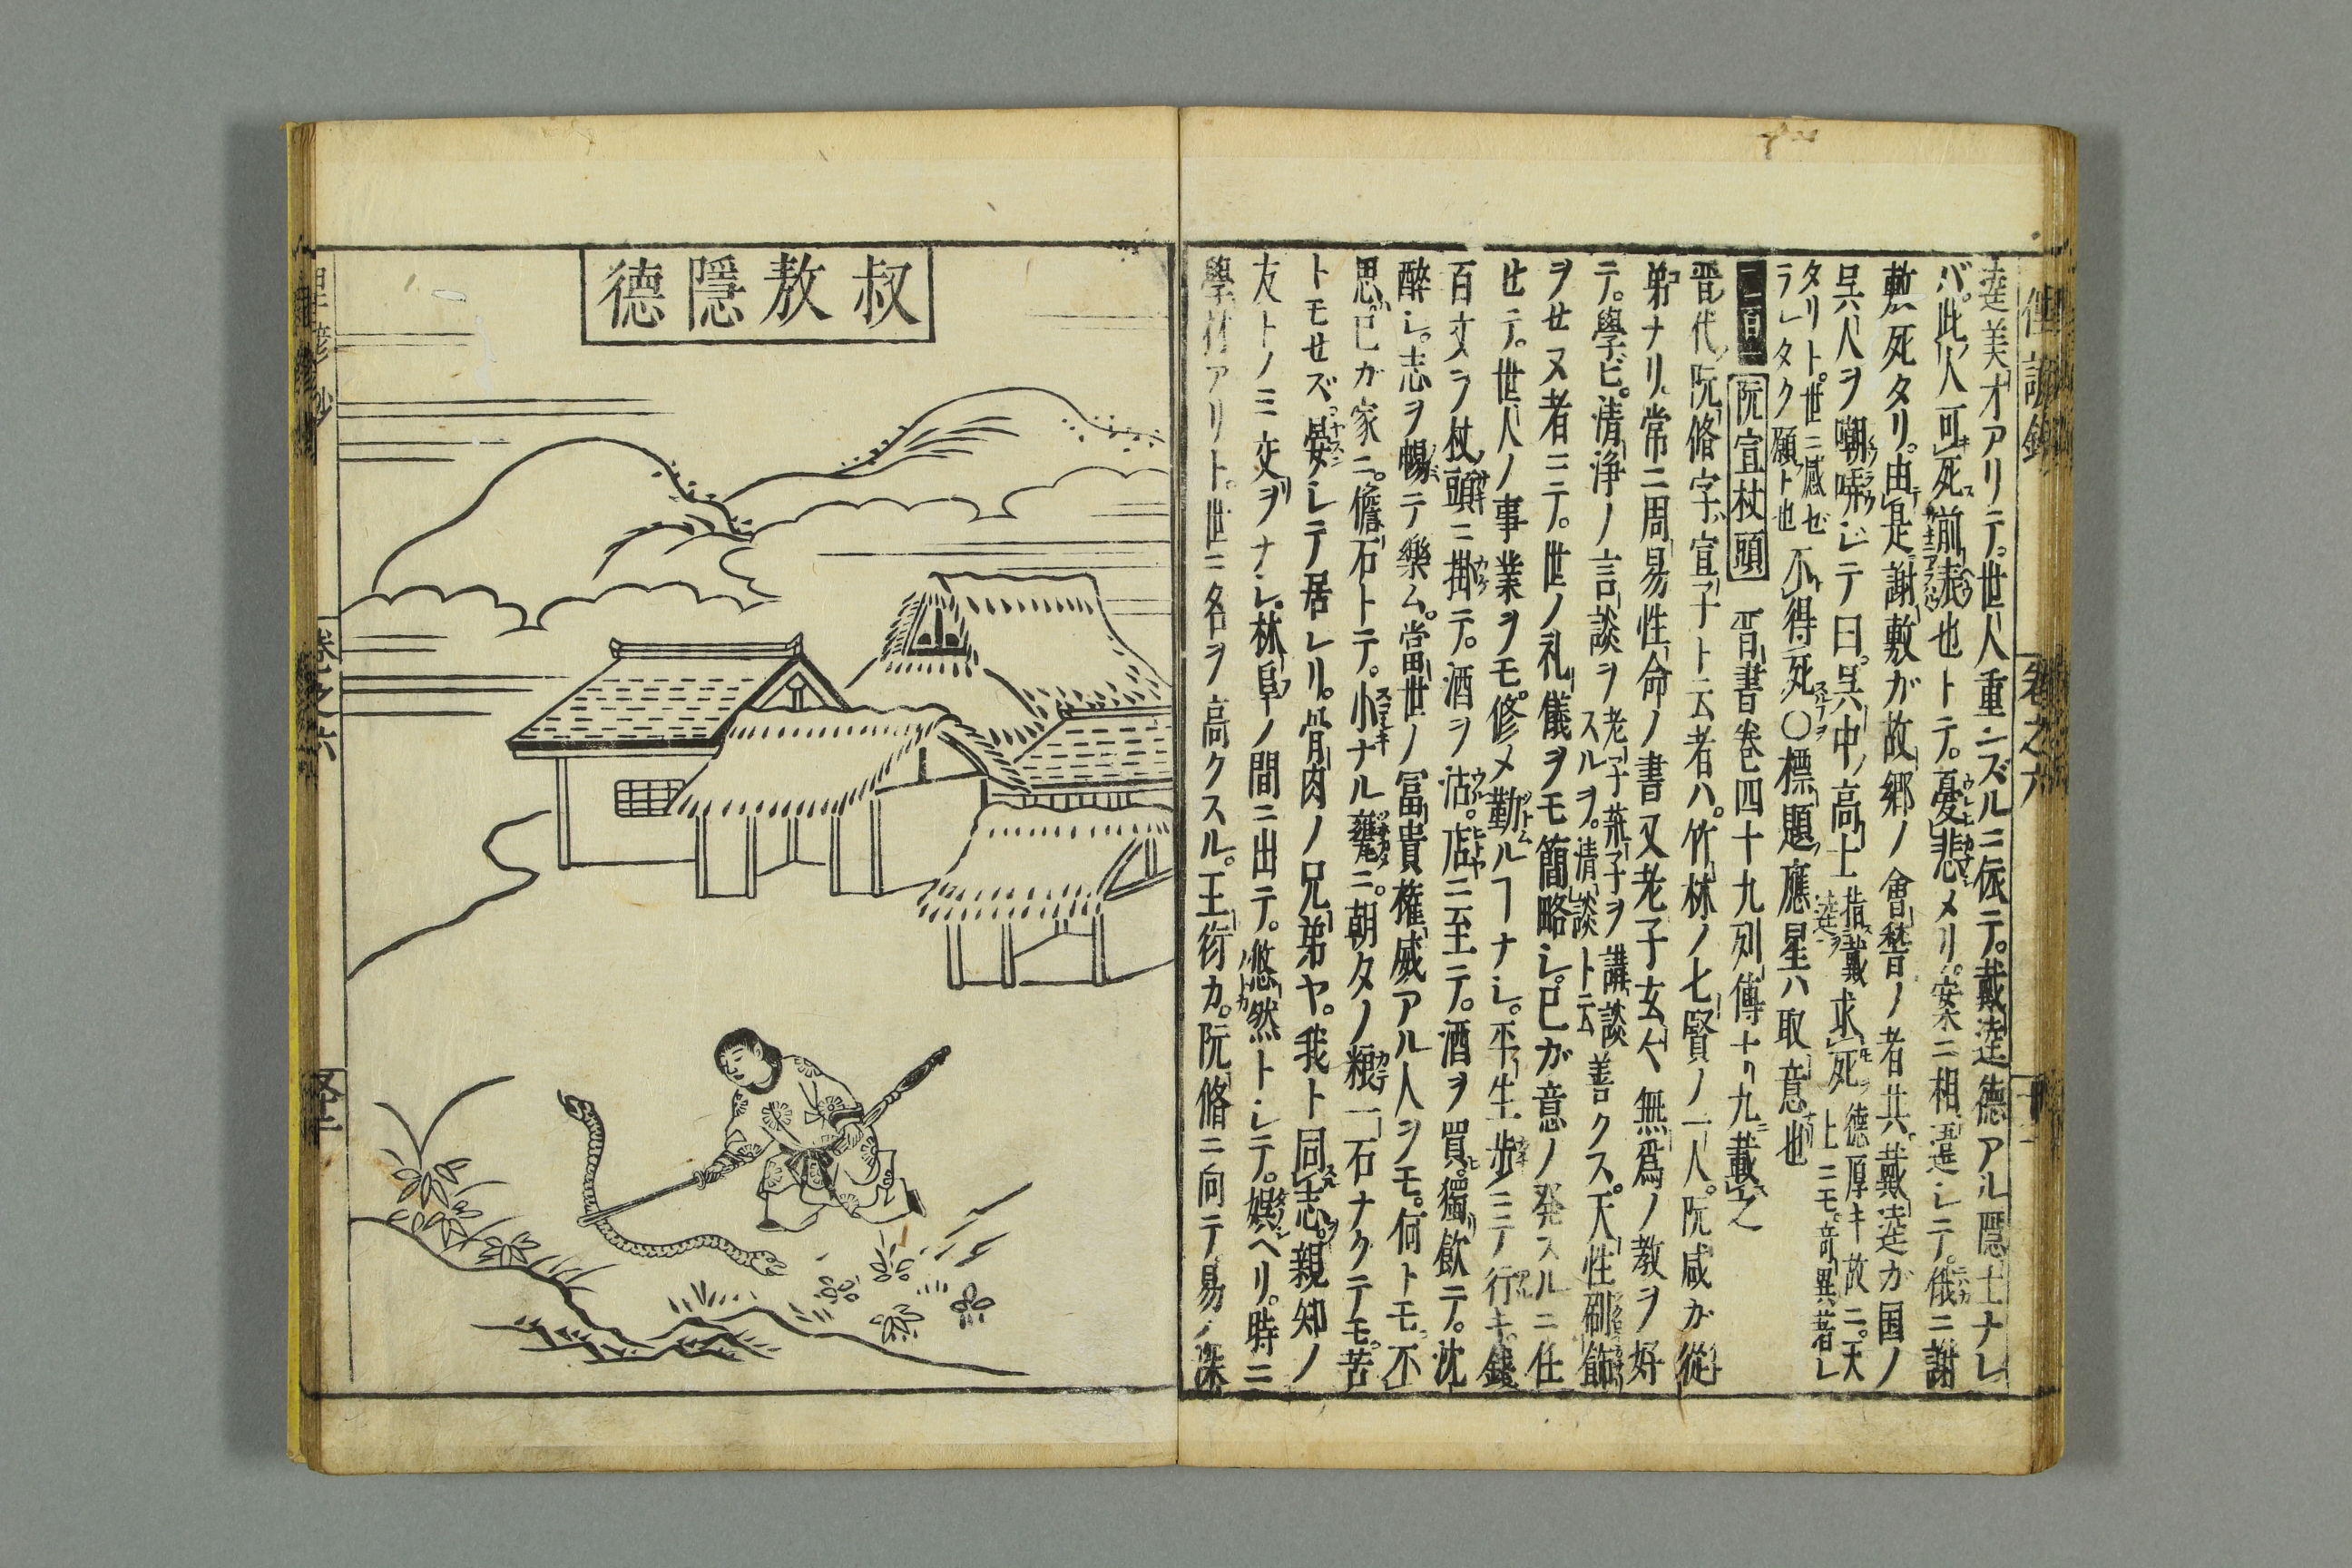 俚諺鈔
卷之六
逵美才アリテ。世人重ンズルニ依テ。戴逵德アル隱士ナレ
バ。此人可死前表也トテ。憂悲メリ。案ニ相違シテ。俄ニ謝
敷死タリ。由是謝敷ガ故郷ノ會稽ノ者共。戴逵ガ国ノ
呉人ヲ嘲哢シテ曰。呉中ノ高上指戴逵ヲ求死德厚キ故ニ。天上ニモ。奇異著レ
タリト。世ニ感ゼラレタク願ト也 不得死〇標題應星ハ取意也
二百一 阮宣杖頭 晋書卷四十九列傳十九載之
晋代阮脩字宣子ト云者ハ。竹林ノ七賢ノ一人。阮咸ガ從
弟ナリ。常ニ周易性命ノ書又老子玄々無爲ノ教ヲ好
テ。學ビ。清浄ノ言談ヲ老子莊子ヲ講談スルヲ。清談ト云善クス。天性刷飾
ヲセヌ者ニテ。世ノ礼儀ヲモ簡略シ。已ガ意ノ発スルニ任
セテ。世人ノ事業ヲモ。修メ勤ルヿナシ。平生歩ミニテ行キ。錢
百文ヲ杖頭ニ掛テ。酒ヲ沽。店ニ至テ。酒ヲ買。獨飲テ。沈
醉シ。志ヲ暢テ樂ム。當世ノ冨貴権威アル人ヲモ。何トモ不
思。已ガ家ニ。儋石トテ。小ナル甕ニ。朝夕ノ粮一石ナクテモ。苦
トモセズ。晏シテ居レリ。骨肉ノ兄弟ヤ。我ト同志。親知ノ
友トノミ交ヲナシ。林阜ノ間ニ出テ。悠然トシテ。娯ヘリ。時ニ
學才アリト。世ニ名ヲ高クスル。王衍カ。阮脩ニ向テ。易ノ深
叔敖隱德
俚諺鈔
卷之六